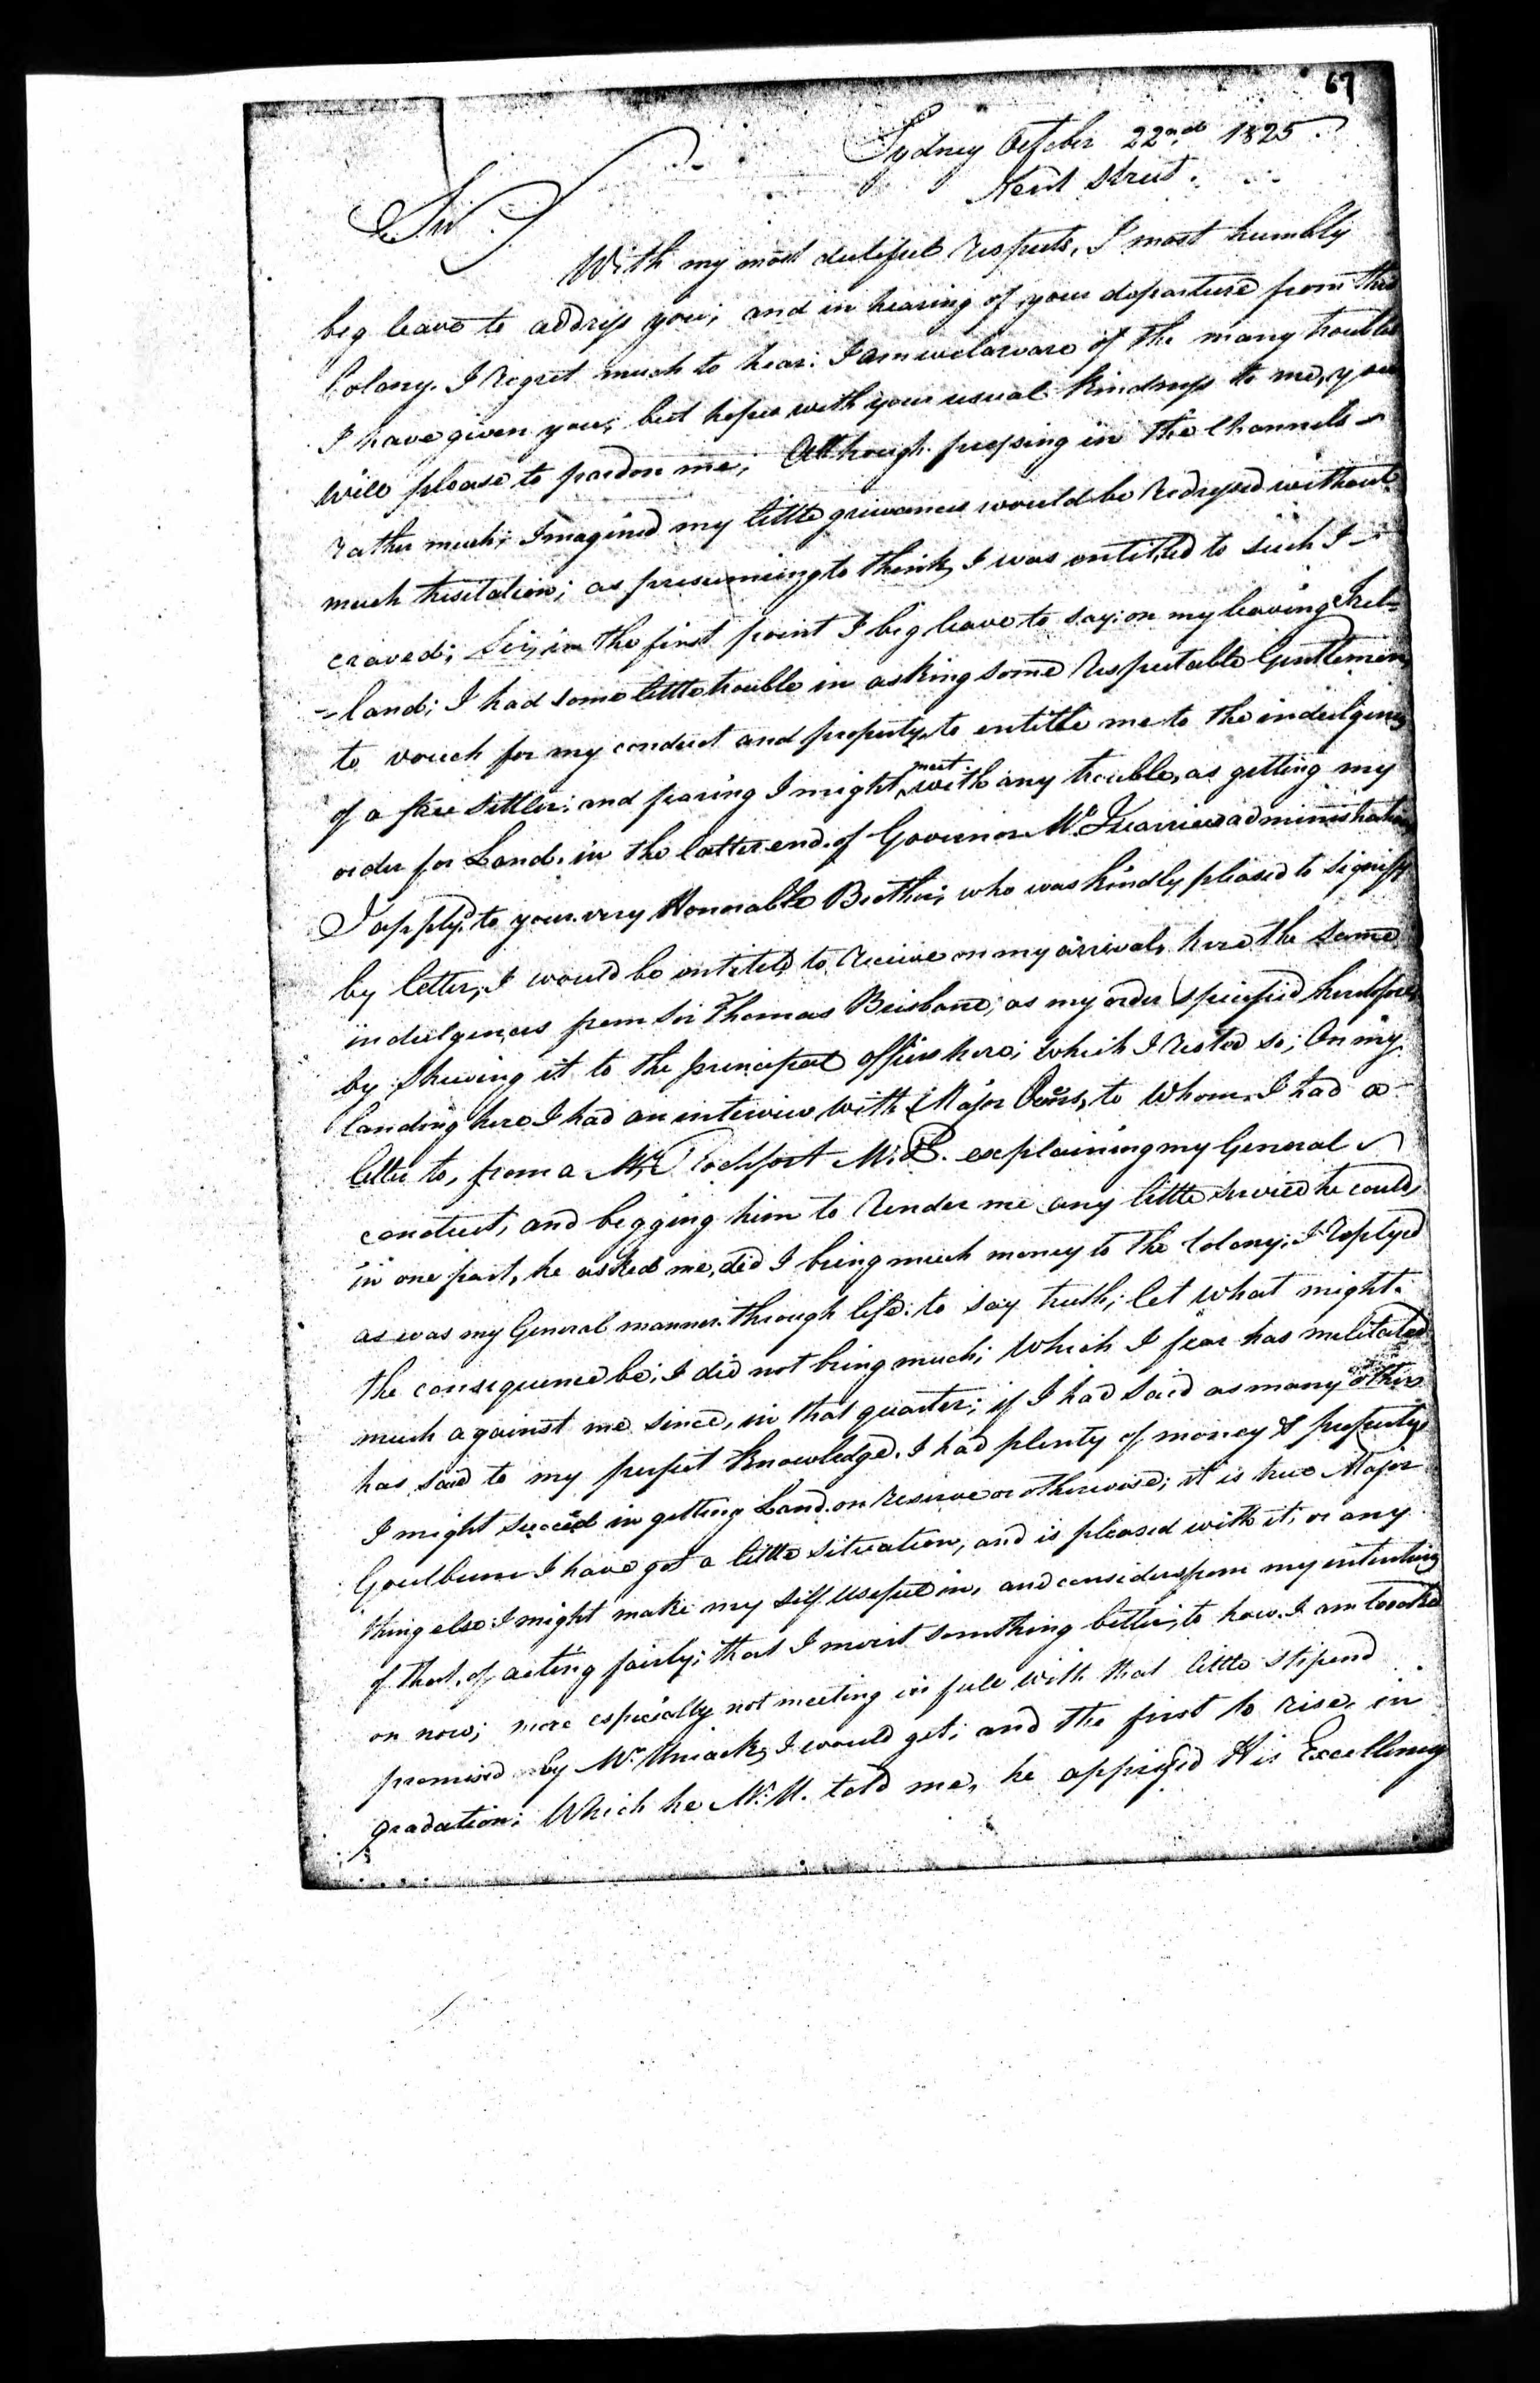 67
Sydney October 22nd 1825.
Kent Street.
Sir
With my most dutifull respects, I most humbly
beg leave to address you; and in hearing of your departure from this
Colony. I regret much to hear: I am welaware of the many troubles
I have given you; but hopes with your usual kindness to me, you
will please to pardon me; Although pressing in the Channels
rather much; Imagined my little grievances would be redressed without
much hesitation; as presumeing to think, I was entitled to such I
craved; Sir, in the first point I beg leave to say: on my leaving Irel=
=land; I had some little trouble in asking some respectable Gentlemen,
to vouch for my conduct and property, to entitle me to the indulgences
of a free settler: and fearing I might meet with any trouble, as getting my
order for Land. in the latter end of Governor McQuarries administration
I apply'd to your very Honorable Brother; who was kindly pleased to signify
by letter, I would be entitled to receive on my arrival, here the same
indulgences from Sir Thomas Brisbane; as my order specified
by shewing it to the principal officer here; which I rested so; On my
landing here I had an interview with Major Ovens, to whom I had a
letter to, from a Mr Rochfort M.P. explaining my General
conduct, and begging him to render me any little service he could,
in one part, he asked me, did I bring much money to the Colony; I replyed
as was my General manner through life: to say truth; let what might
the consequence be; I did not bring much; Which I fear has melitated
much against me since, in that quarter; if I had said as many others
has said to my perfect knowledge. I had plenty of money & property
I might succeed in getting Land on reserve or otherwise; it is true Major
Goulburn I have got a little situation, and is pleased with it, or any
thing else I might make my self usefull in, and considers from my intentions
of that, of acting fairly; that I merit something better, to how I am looked
on now; more especially not meeting in full with that little stipend
promised by Mr Uniack, I would get; and the first to rise, in
gradation; Which he Mr U. told me, he apprised His Excellency